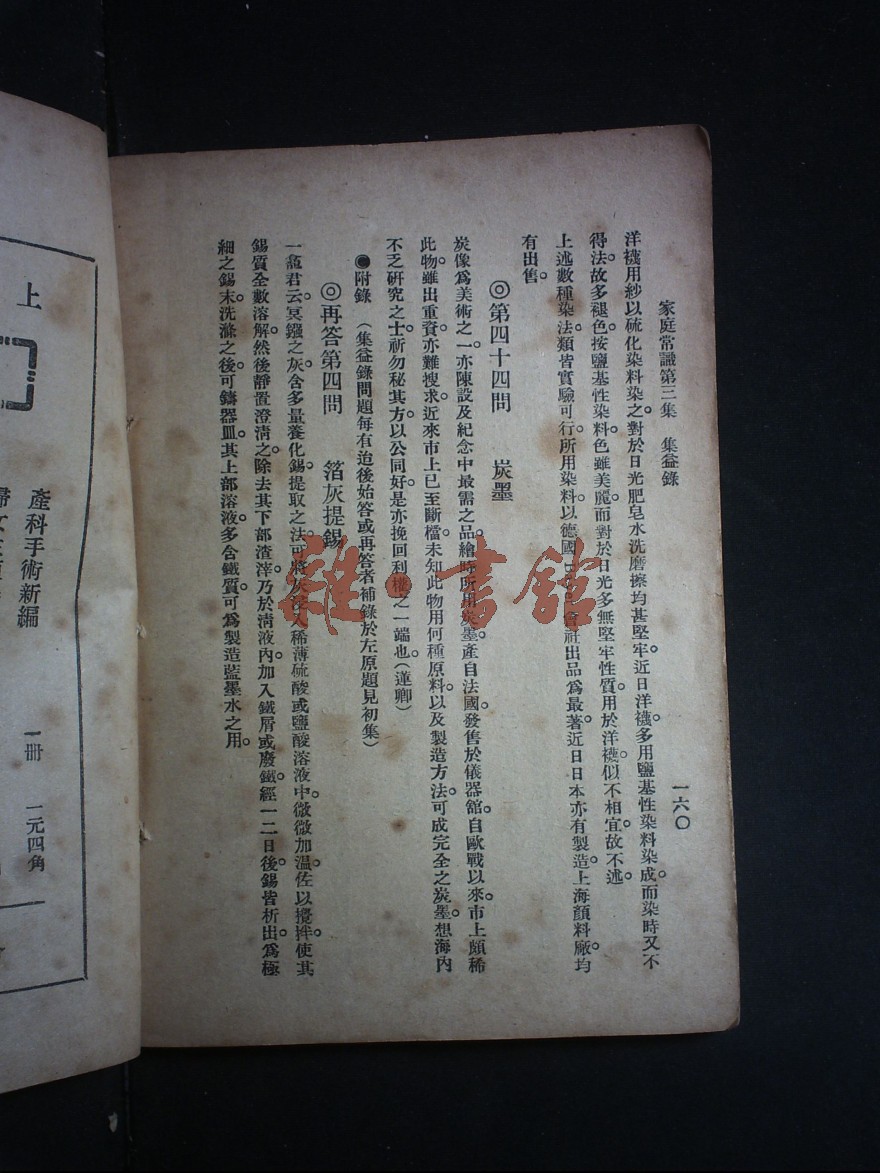 家庭常識第三集　集益錄
一六〇
洋襪用紗以硫化染料染之。對於日光肥皂水洗磨擦均甚堅牢。近日洋襪。多用鹽基性染料染成。而染時又不
得法。故多褪色。按鹽基性染料。色雖美麗。而對於日光多無堅牢性質。用於洋襪。似不相宜。故不述。
上述數種染法。類皆實驗可行。所用染料。以德國 會社出品爲最著。近日日本亦有製造。上海顏料廠均
有出售。
◎第四十四問　炭墨
炭像爲美術之一。亦陳設及紀念中最需之品。繪時所用炭墨。產自法國。發售於儀器舘。自歐戰以來。市上頗稀
此物。雖出重資。亦難搜求。近來市上已至斷檔。未知此物用何種原料。以及製造方法。可成完全之炭墨。想海內
不乏研究之士。祈勿秘其方。以公同好。是亦挽回利權之一端也。(蓮卿)
●附錄　(集益錄問題每有迨後始答或再答者補錄於左原題見初集)
◎再答第四問　箔灰提錫
一盦君云。冥鏹之灰。含多量養化錫。提取之法。可將灰浸入稀薄硫酸或鹽酸溶液中。微微加溫。佐以攪拌。使其
錫質全數溶解。然後靜置澄清之。除去其下部渣滓。乃於淸液內。加入鐵屑或廢鐵。經一二日後。錫皆析出。爲極
細之錫末。洗滌之後。可鑄器皿。其上部溶液。多含鐵質。可爲製造藍墨水之用。
上
產科手術新編　一冊　一元四角
雜·書館